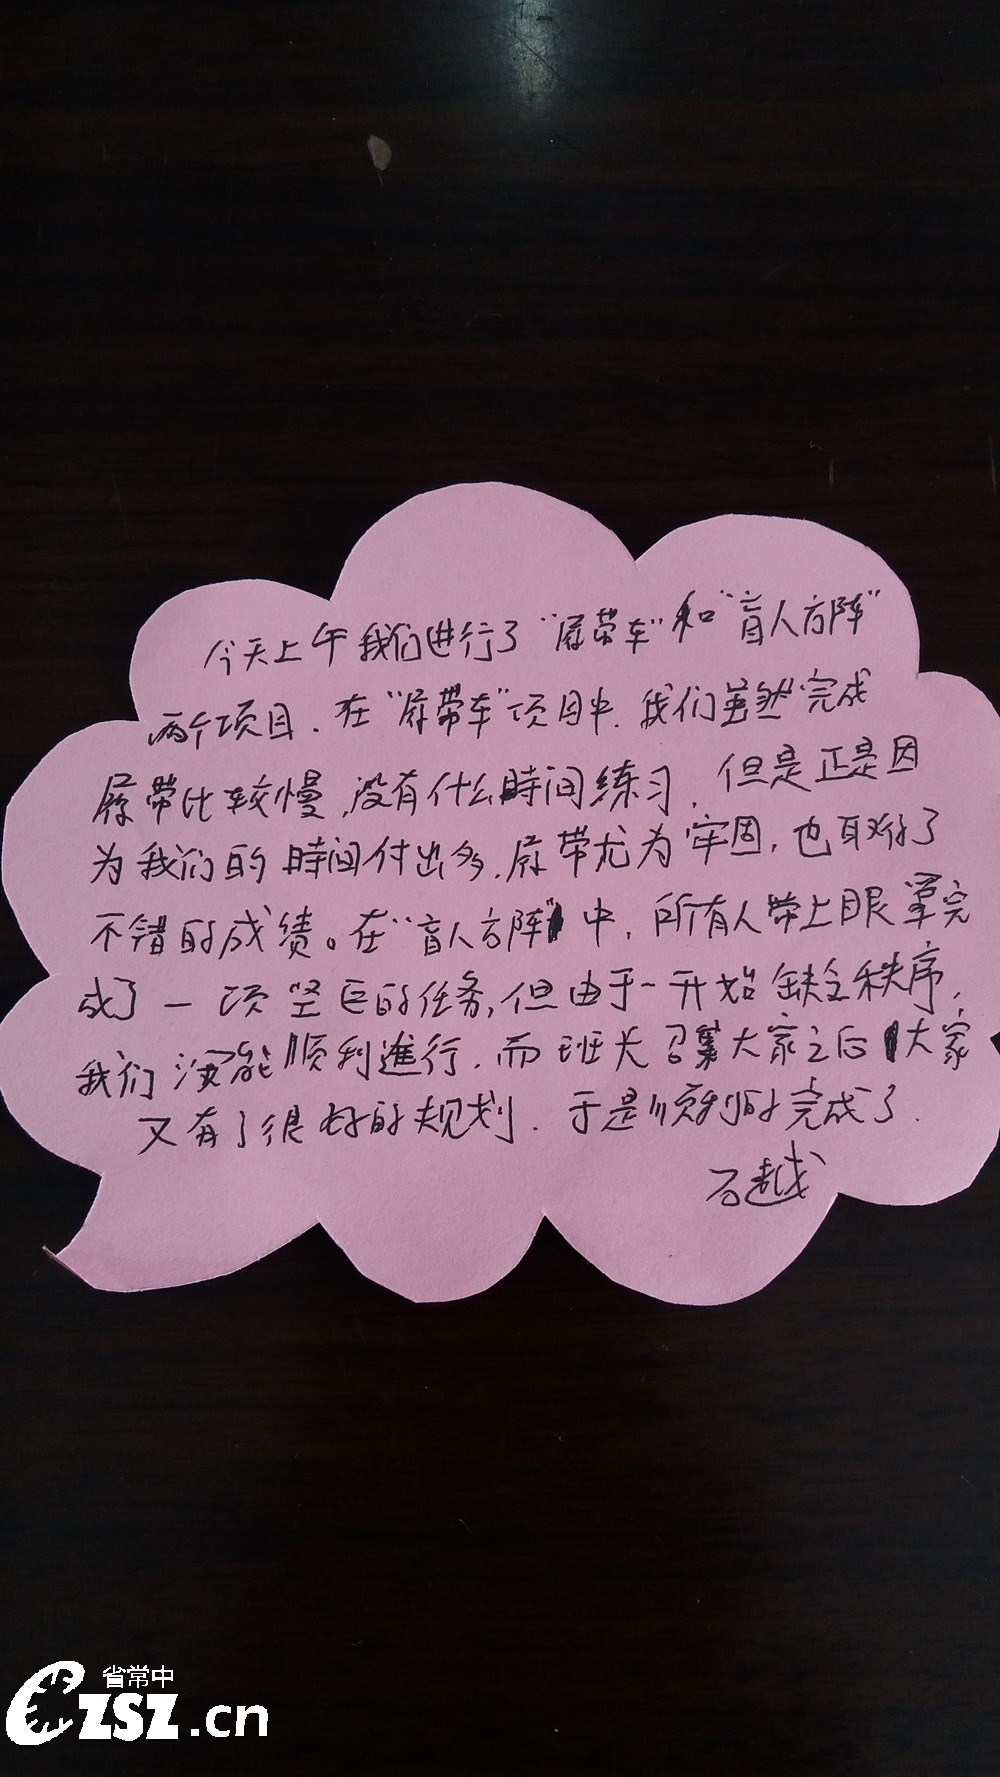 今天上午我们进行了“履带车”和“盲人方阵”
两个项目.在“履带车”项目中.我们虽然完成
履带比较慢,没有什么時间练习,但是正是因
为我们的時间付出多,履带尤为牢固,也取得了
不错的成绩。在“盲人方阵”中,所有人带上眼罩完
成了一项坚巨的任务,但由于一开始缺乏秩序,
我们没能顺利進行.而班长召集大家之后大家
又有了很好的规划.于是顺利的完成了.
石越
省常中
CZSZ.cn